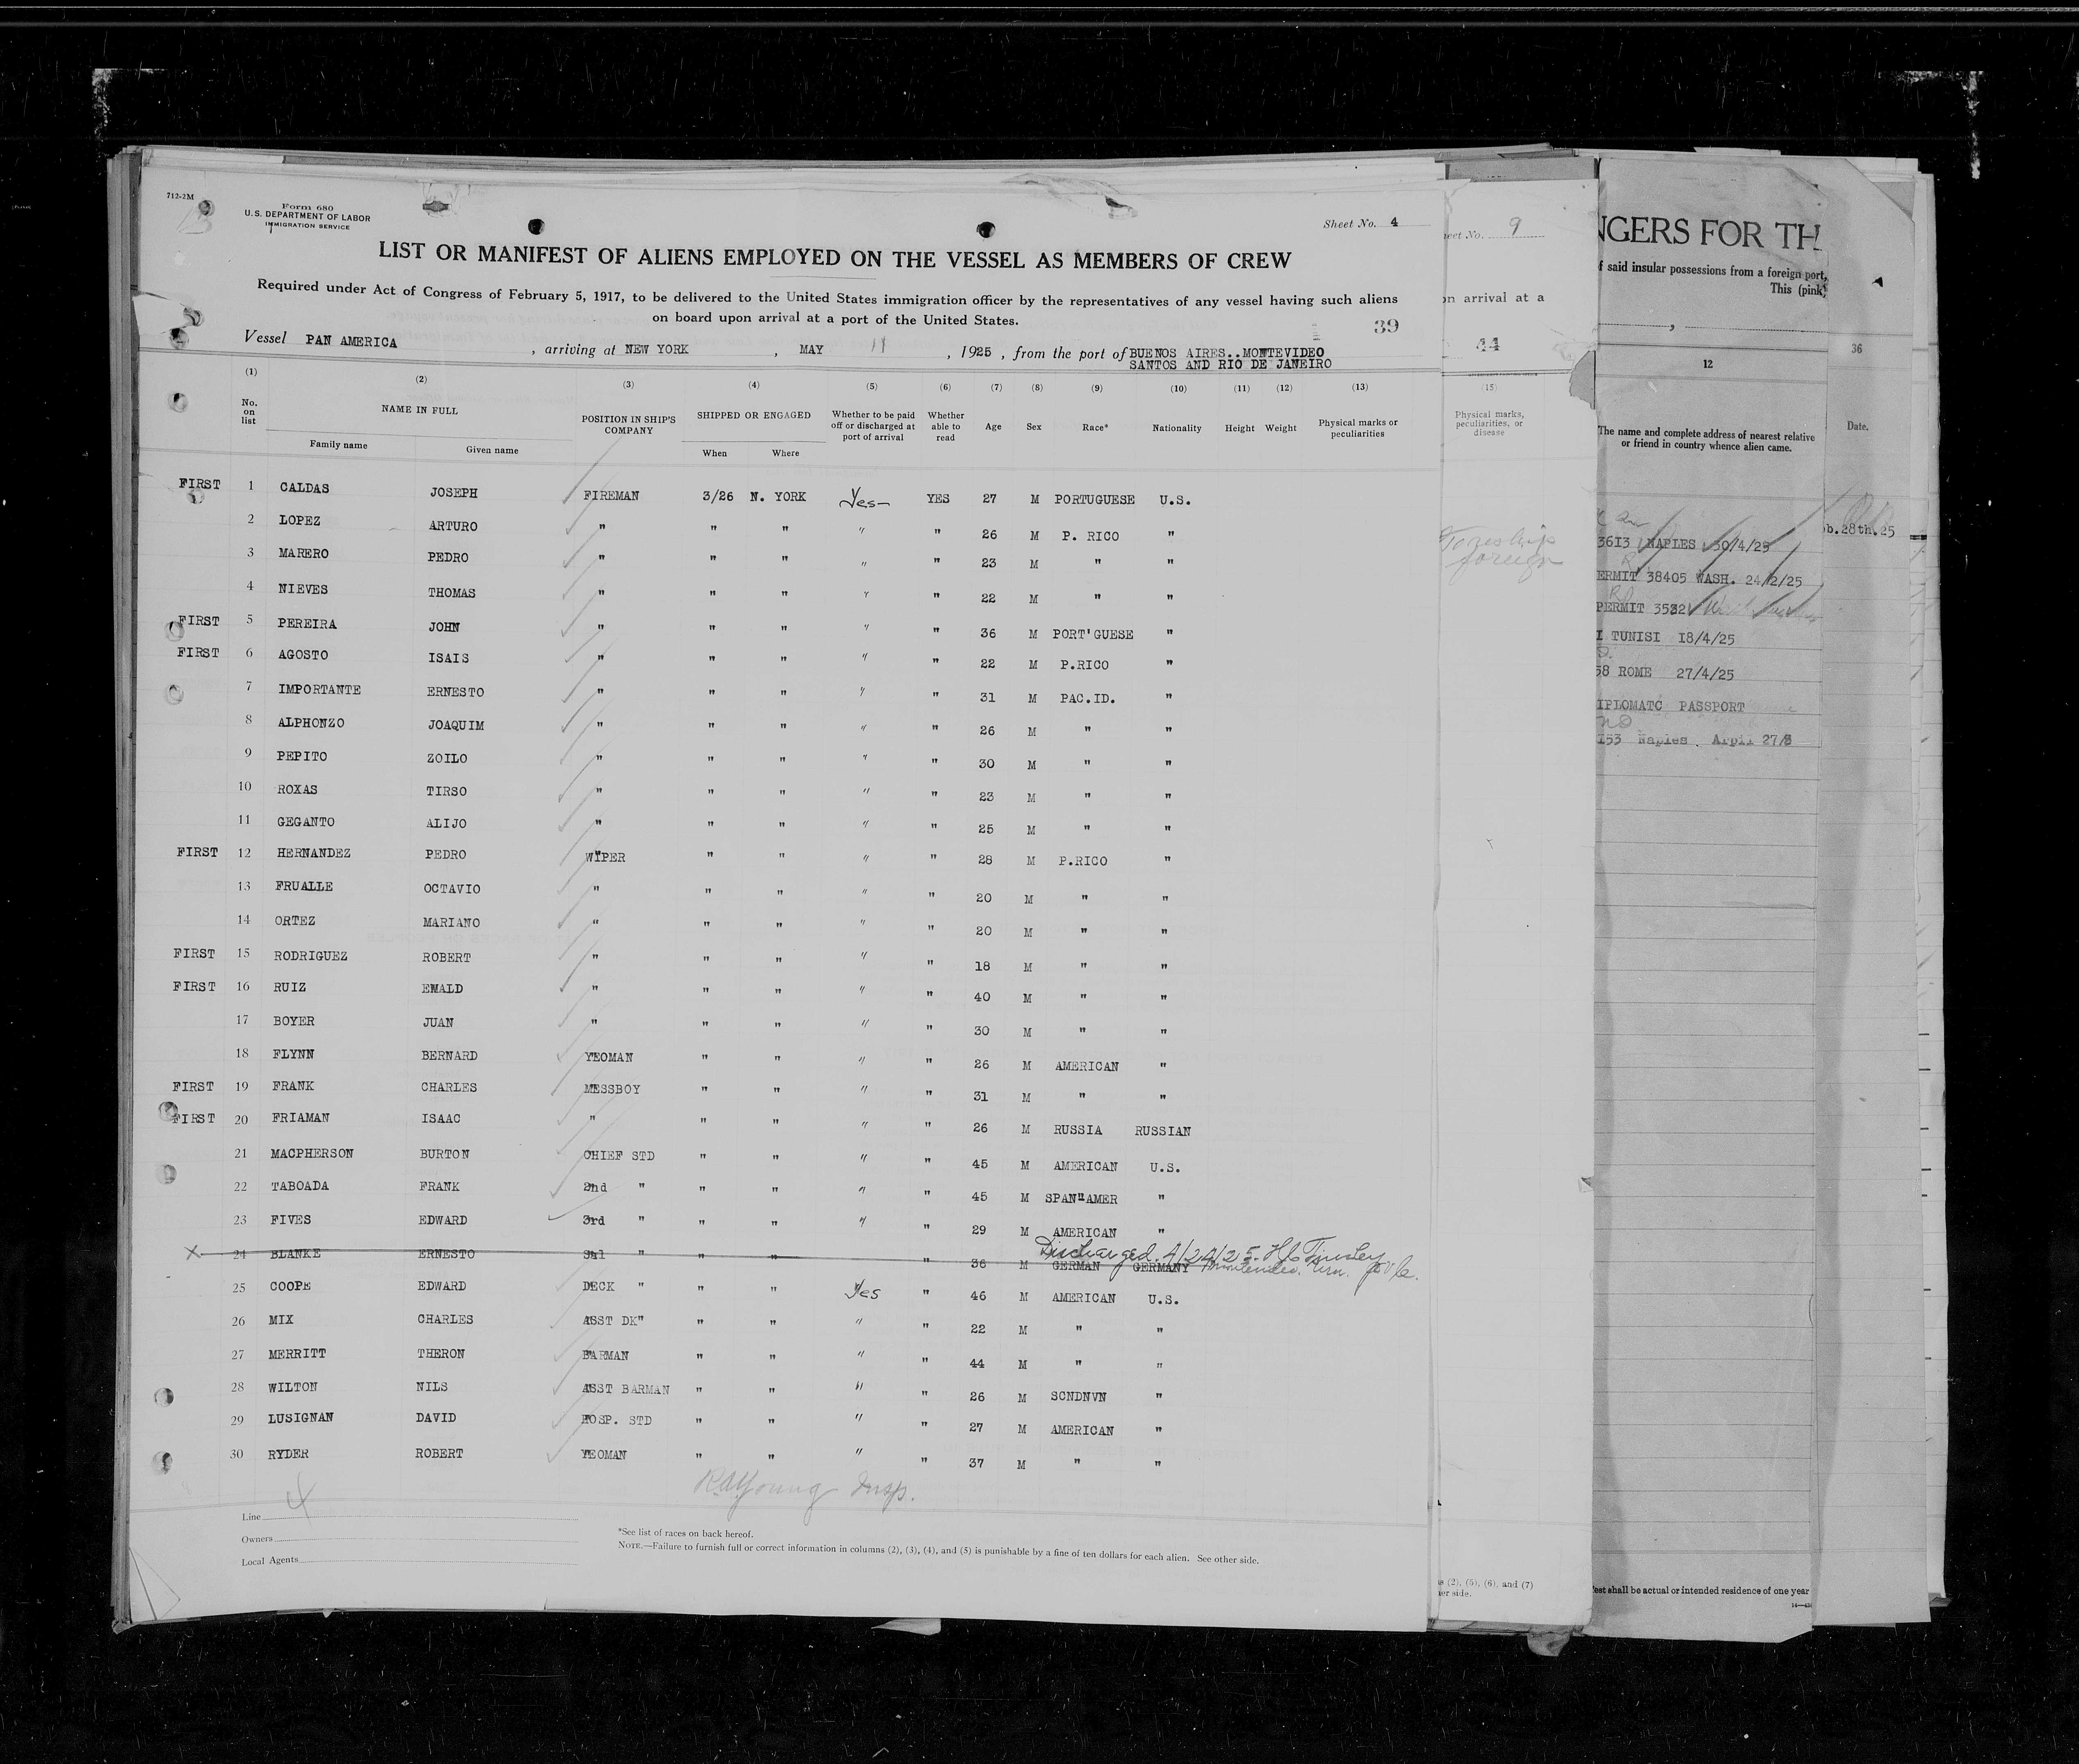 712-2M
13
Form 680
U.S. DEPARTMENT OF LABOR
IMMIGRATION SERVICE
Sheet No. 4
LIST OR MANIFEST OF ALIENS EMPLOYED ON THE VESSEL AS MEMBERS OF CREW
Required under Act of Congress of February 5, 1917, to be delivered to the United States immigration officer by the representatives of any vessel having such aliens
on board upon arrival at a port of the United States.
39
Vessel PAN AMERICA , arriving at NEW YORK , MAY 11 , 1925 , from the port of BUENOS AIRES..MONTEVIDEO
SANTOS AND RIO DE JANEIRO
(1) (2) (3) (4) (5) (6) (7) (8) (9) (10) (11) (12) (13)
No. on list NAME IN FULL POSITION IN SHIP'S COMPANY SHIPPED OR ENGAGED Whether to be paid off or discharged at port of arrival Whether able to read Age Sex Race* Nationality Height Weight Physical marks or peculiarities
Family name Given name When Where
FIRST 1 CALDAS JOSEPH FIREMAN 3/26 N. YORK Yes- YES 27 M PORTUGUESE U.S.
2 LOPEZ ARTURO " " " " " 26 M P. RICO "
3 MARERO PEDRO " " " " " 23 M " "
4 NIEVES THOMAS " " " " " 22 M " "
FIRST 5 PEREIRA JOHN " " " " " 36 M PORT'GUESE "
FIRST 6 AGOSTO ISAIS " " " " " 22 M P.RICO "
7 IMPORTANTE ERNESTO " " " " " 31 M PAC.ID. "
8 ALPHONZO JOAQUIM " " " " " 26 M " "
9 PEPITO ZOILO " " " " " 30 M " "
10 ROXAS TIRSO " " " " " 23 M " "
11 GEGANTO ALIJO " " " " " 25 M " "
FIRST 12 HERNANDEZ PEDRO WIPER " " " " 28 M P.RICO "
13 FRUALLE OCTAVIO " " " " " 20 M " "
14 ORTEZ MARIANO " " " " " 20 M " "
FIRST 15 RODRIGUEZ ROBERT " " " " " 18 M " "
FIRST 16 RUIZ EWALD " " " " " 40 M " "
17 BOYER JUAN " " " " " 30 M " "
18 FLYNN BERNARD YEOMAN " " " " 26 M AMERICAN "
FIRST 19 FRANK CHARLES MESSBOY " " " " 31 M " "
FIRST 20 FRIAMAN ISAAC " " " " " 26 M RUSSIA RUSSIAN
21 MACPHERSON BURTON CHIEF STD " " " " 45 M AMERICAN U.S.
22 TABOADA FRANK 2nd " " " " " 45 M SPAN"AMER "
23 FIVES EDWARD 3rd " " " " " 29 M AMERICAN "
Discharged 4/24/25. H.C. Tinsley
X 24 BLANKE ERNESTO Sal " " " " 36 M GERMAN GERMANY Montevideo.
25 COOPE EDWARD DECK " " " Yes " 46 M AMERICAN U.S.
26 MIX CHARLES ASST DK" " " " " 22 M " "
27 MERRITT THERON BARMAN " " " " 44 M " "
28 WILTON NILS ASST BARMAN " " " " 26 M SCNDNVN "
29 LUSIGNAN DAVID HOSP. STD " " " " 27 M AMERICAN "
30 RYDER ROBERT YEOMAN " " " " 37 M " "
R.A. Young Insp.
4
Line
Owners
Local Agents
*See list of races on back hereof.
NOTE.—Failure to furnish full or correct information in columns (2), (3), (4), and (5) is punishable by a fine of ten dollars for each alien. See other side.
eet No. 9
on arrival at a
44
(15)
Physical marks,
peculiarities, or
disease
foreign
s (2), (5), (6), and (7)
er side.
NGERS FOR TH
f said insular possessions from a foreign port,
This (pink)
12
The name and complete address of nearest relative
or friend in country whence alien came.
3613 NAPLES 30/4/25
ERMIT 38405 WASH. 24/2/25
PERMIT 3532
I TUNISI 18/4/25
58 ROME 27/4/25
IPLOMATC PASSPORT
153 Naples
est shall be actual or intended residence of one year
36
Date.
b.28th.25